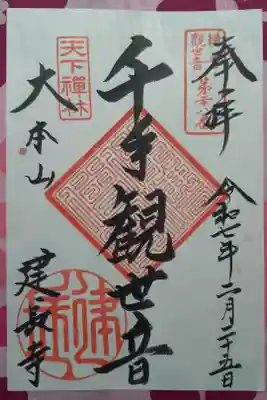 奉拝
令和七年二月二十五日
千手観世音
天下禅林
大本山
建長寺